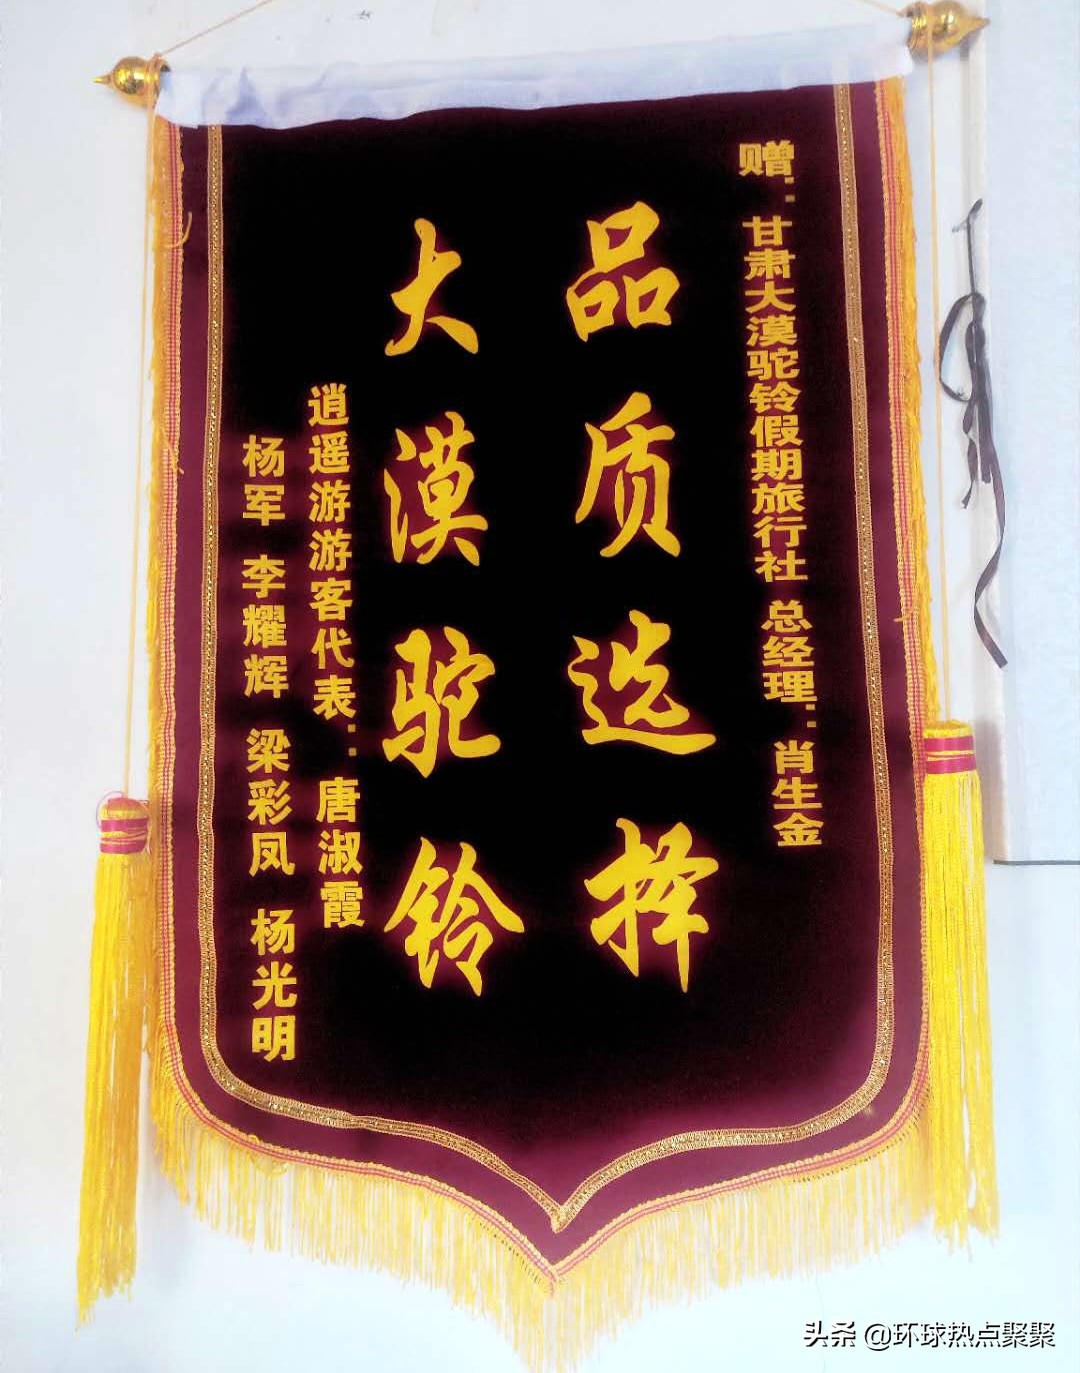 赠：甘肃大漠驼铃假期旅行社 总经理：肖生金
品质选择
大漠驼铃
逍遥游游客代表：唐淑霞
杨军 李耀辉 梁彩凤 杨光明
头条 @环球热点聚聚